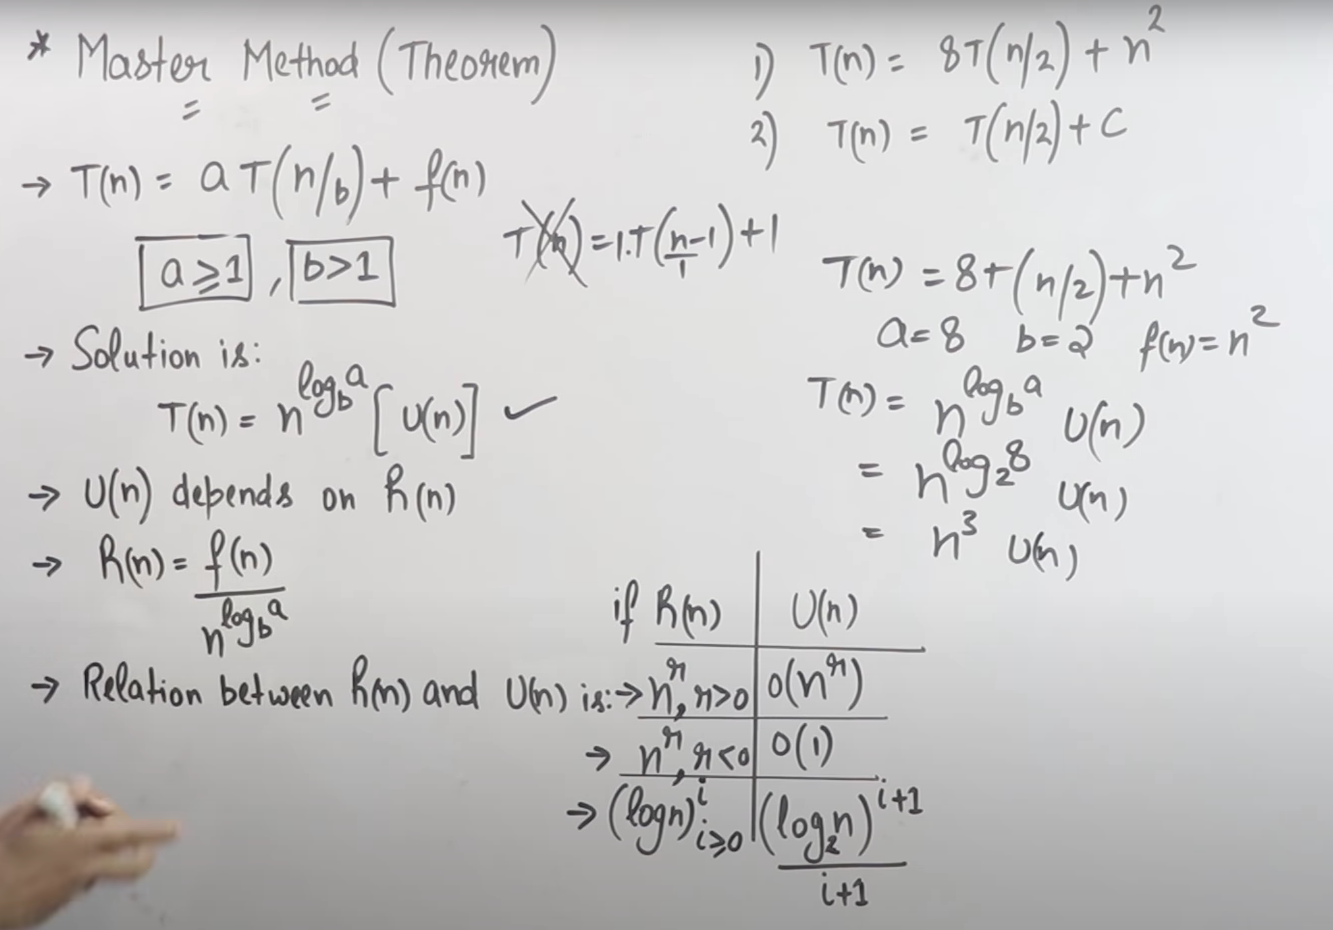 * Master Method (Theorem)
→ T(n) = aT(n/b) + f(n)
a≥1, b>1
T(n) = 1.T(n-1/1) + 1
→ Solution is:
T(n) = n^log_b a [U(n)] ✓
→ U(n) depends on R(n)
→ R(n) = f(n) / n^log_b a
→ Relation between R(n) and U(n) is:
if R(n) | U(n)
→ n^r, r>0 | O(n^r)
→ n^r, r<0 | O(1)
→ (logn)^i i≥0 | (log₂n)^i+1 / i+1
1) T(n) = 8T(n/2) + n²
2) T(n) = T(n/2) + C
T(n) = 8T(n/2) + n²
a=8 b=2 f(n)=n²
T(n) = n^log_b a U(n)
= n^log₂8 U(n)
= n³ U(n)